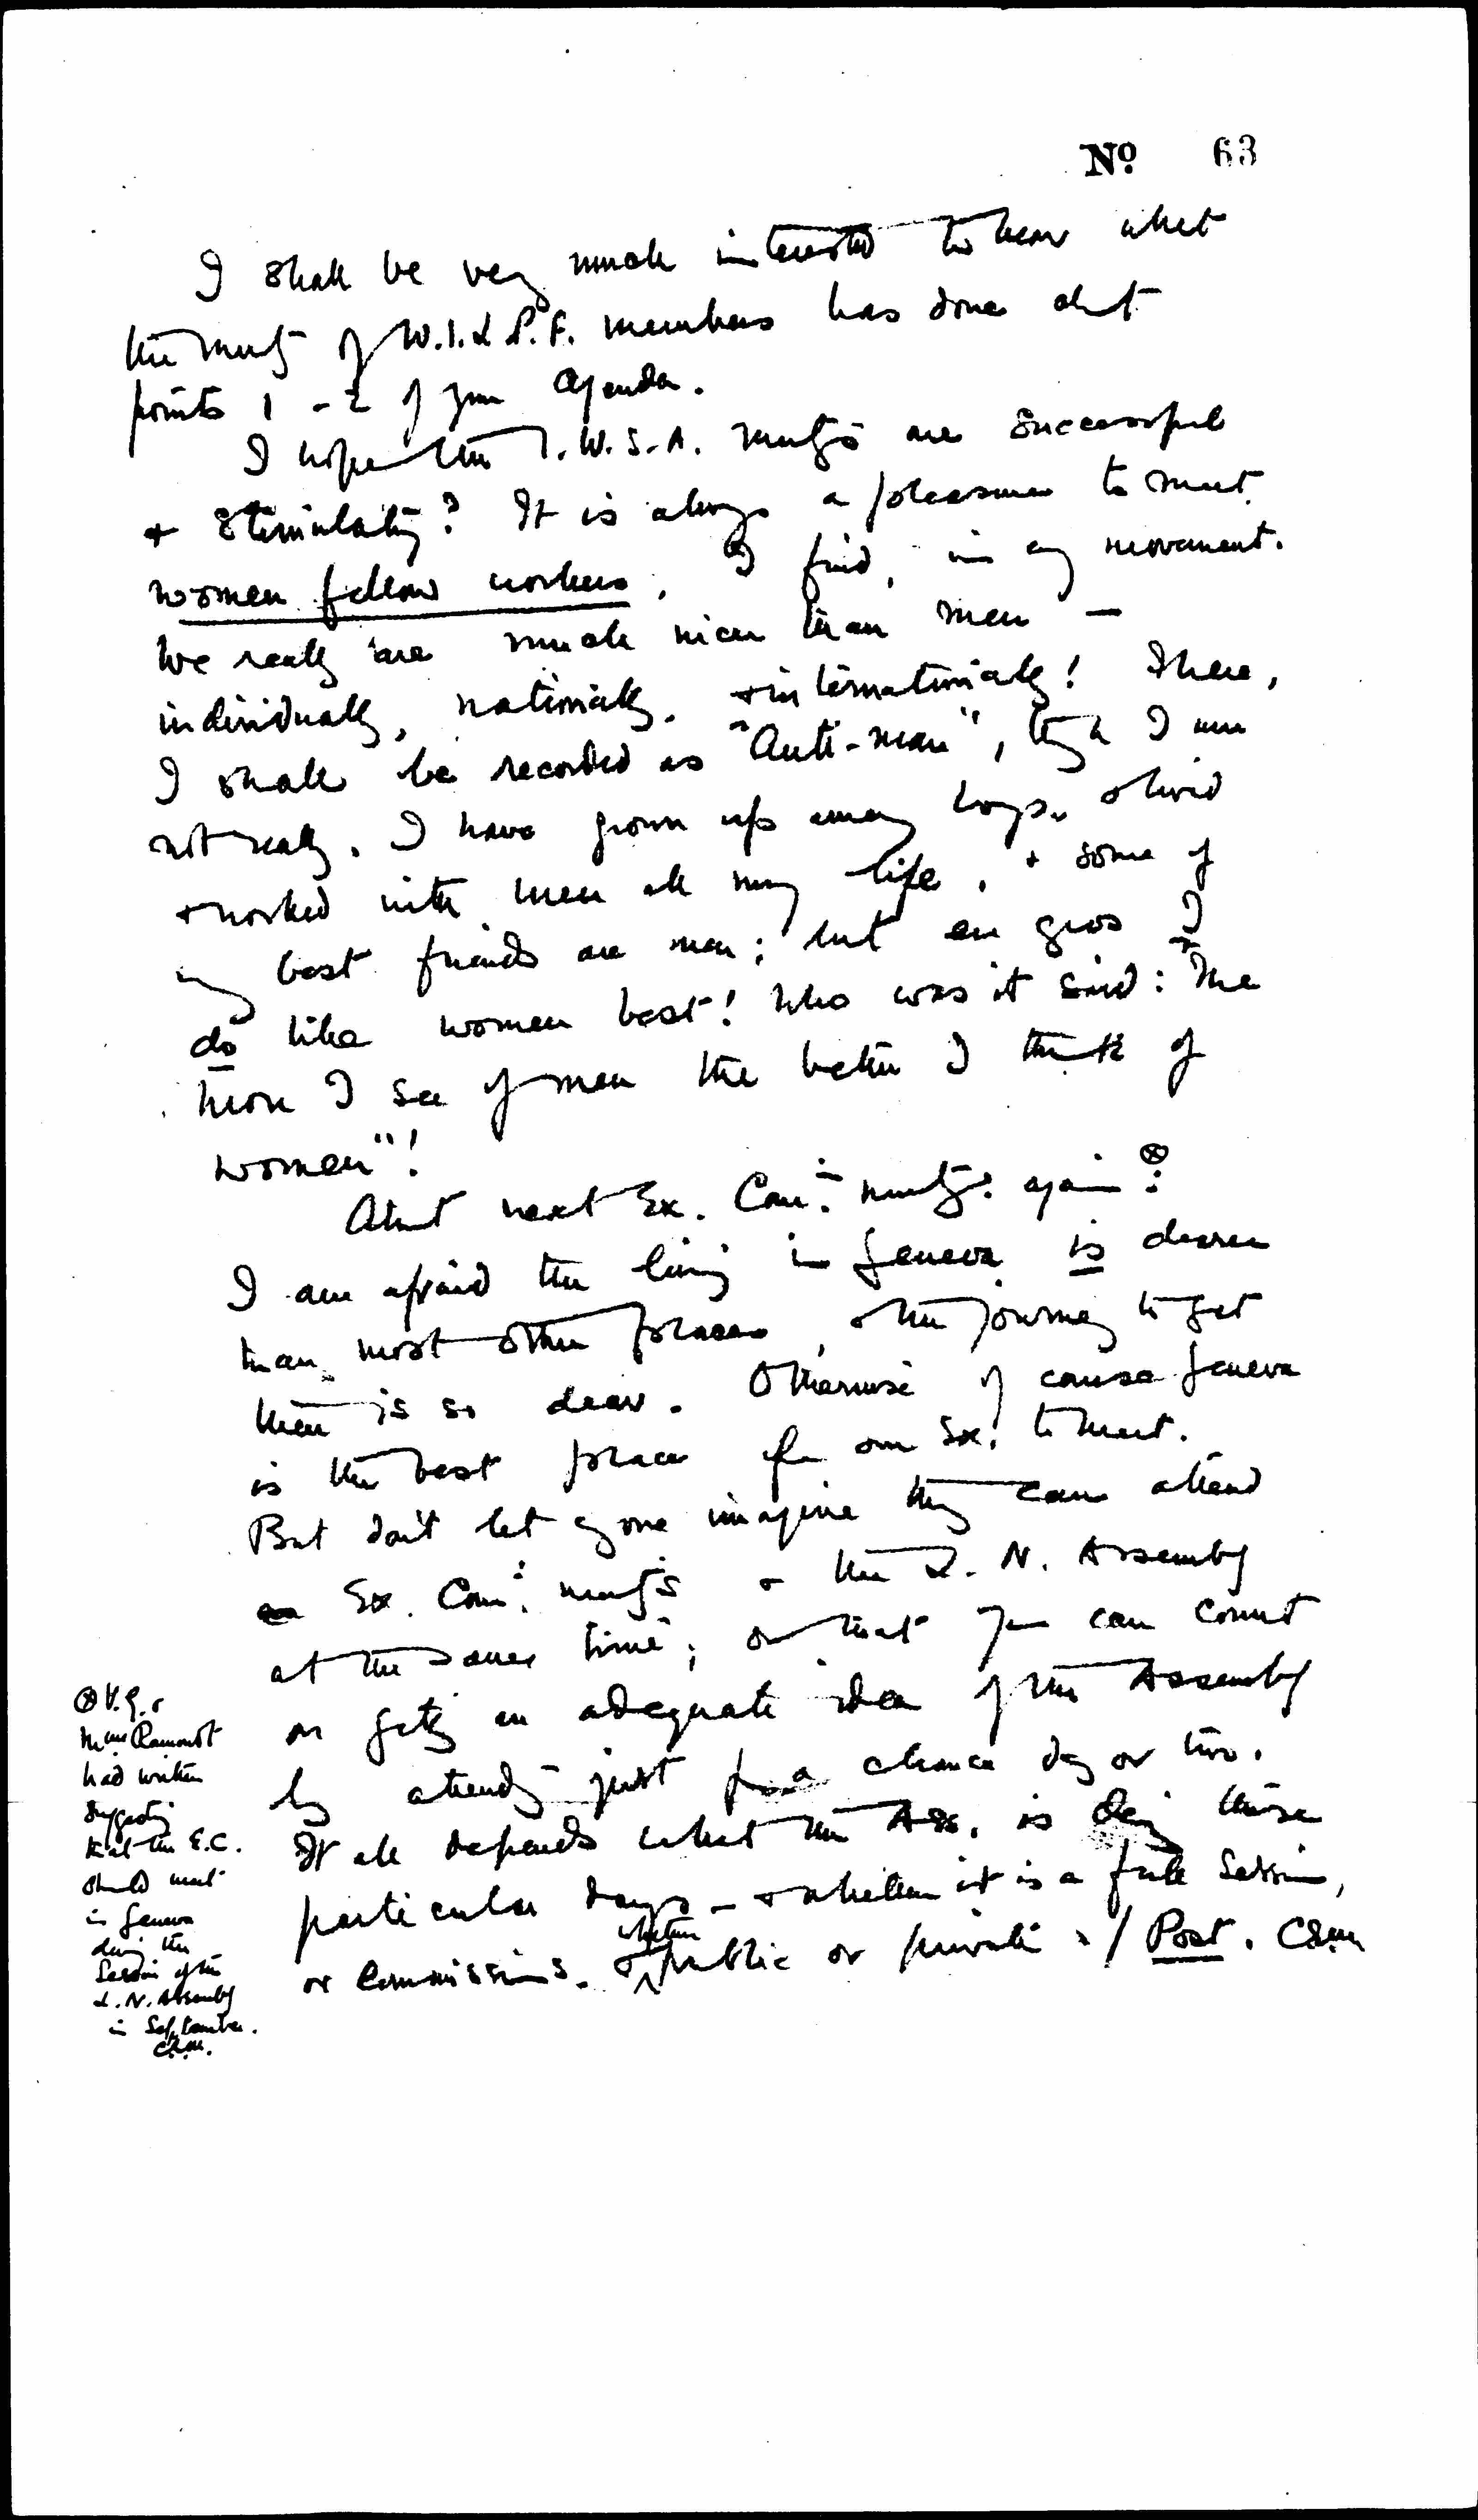 No 63
I shall be very much interested to hear what
the meetg of W.I.L.P.F. members has done abt
points 1 - 2 of your Agenda.
I hope the I.W.S.A. meetgs are successful
& stimulating? It is always a pleasure to meet
women fellow workers, I find, in any movement.
We really are much nicer than men —
individually, nationally, & internationally! There,
I shall be recorded as "Anti-man", tho' I am
not really. I have grown up among boys, & lived
& worked with men all my life, & some of
my best friends are men; but en gros I
do like women best! Who was it said: "The
more I see of men the better I think of
women"!
About next Ex. Com. meetg. again ⊗:
I am afraid the living in Geneva is dearer
than most other places, & the journey to get
there is so dear. Otherwise of course Geneva
is the best place for our Ex. to meet.
But don't let anyone imagine they can attend
Ex. Com. meetgs & the L. N. Assembly
at the same time; or that you can count
on getting an adequate idea of the Assembly
by attending just for a chance day or two.
It all depends what the Ass. is doing those
particular days - & whether it is a full Session,
or Commissions. & whether public or private. / Post. C.R.M.
⊗ V.G. &
Mme Ramondt
had written
suggesting
that the E.C.
should meet
in Geneva
during the
Session of the
L. N. Assembly
in September.